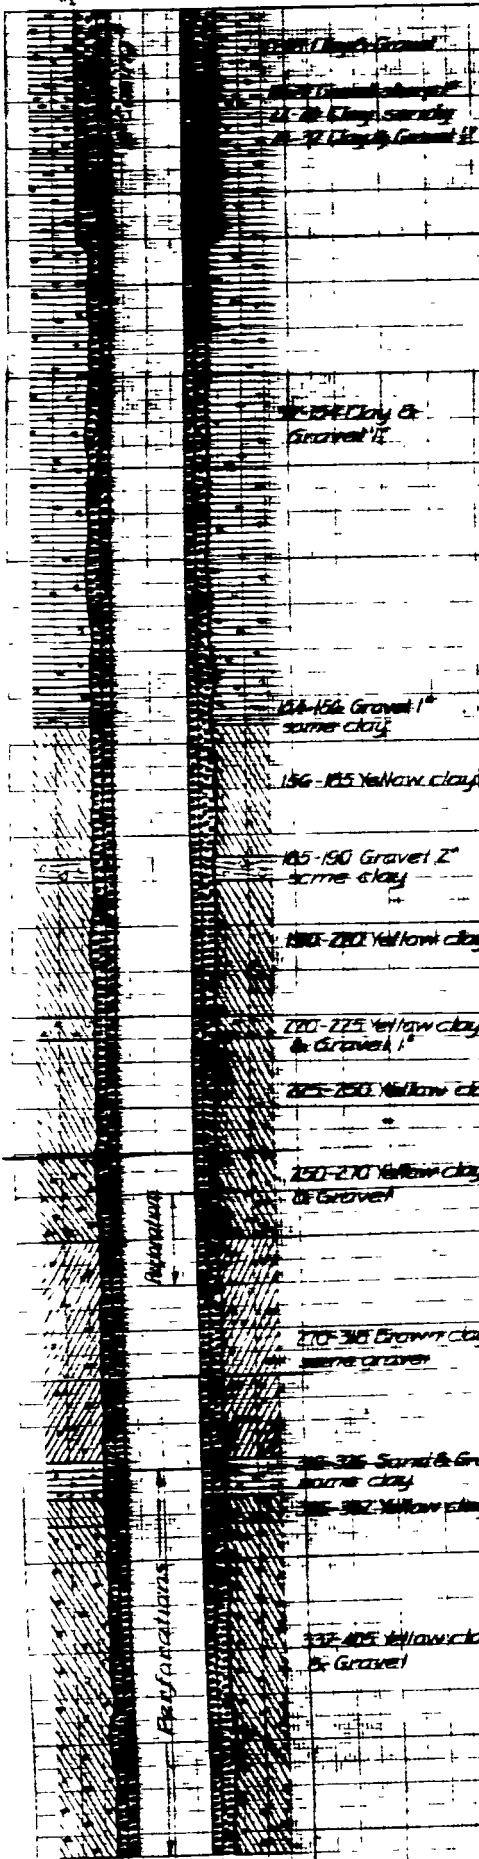 Clay & Gravel
Clay, sandy
Clay & Gravel 1½"
37-154 Clay &
Gravel 1½"
154-156 Gravel 1"
some clay
156-185 Yellow clay
185-190 Gravel 2"
some clay
190-220 Yellow clay
220-225 Yellow clay
& Gravel 1"
225-250 Yellow cla
250-270 Yellow clay
& Gravel
Perforations
270-318 Brown cla
some gravel
318-326 Sand & Gra
some clay
Yellow clay
337-405 Yellow cla
& Gravel
Perforations